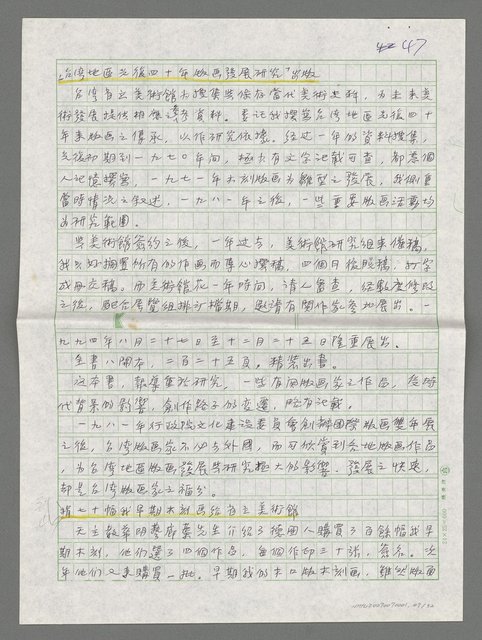 47
「台灣地區光復四十年版画發展研究」出版
台灣省立美術館為搜集與保存當代美術史料，為未來美
術發展提供相應之參考資料。委託我撰寫台灣地區光復四十
年來版画之傳承，以作研究依據。經过一年的資料搜集，
光復初期到一九七〇年间，極少有文字記載可查，都憑個
人記憶撰寫，一九七一年木刻版画為雛型之發展，我側重
當時情況之叙述，一九八一年之後，一些重要版画活動均
為研究範圍。
與美術館簽約之後，一年过去，美術館研究組來催稿，
我只好擱置所有的作画而專心撰稿，四個月後脫稿，打字
成冊交稿。而美術館花一年時间，請人審查，經數度修改
之後，配合展覽組排訂檔期，邀請有関作家參加展出。一
九九四年八月二十七日至十二月二十五日隆重展出。
全書八開本，二百二十五頁。精裝出書。
這本書，執筆重於研究，一些有関版画家之作品，應時
代背景的影響，創作路子的变遷，略有記載。
一九八一年行政院文化建設委員會創辦國際版画雙年展
之後，台灣版画家不必去外國，而可欣賞到各地版画作品
，為台灣地區版画發展与研究極大的影響。發展之快速，
却是台灣版画家之福分。
捐七十幅我早期木刻画給省立美術館
天主教華明藝廊葉先生介紹了德國人購買了百餘幅我早
期木刻，他们選了四個作品，每個作印三十張，簽名。次
年他们又來購買一批。早期我的木口版木刻画，雖然版面
24×25=600